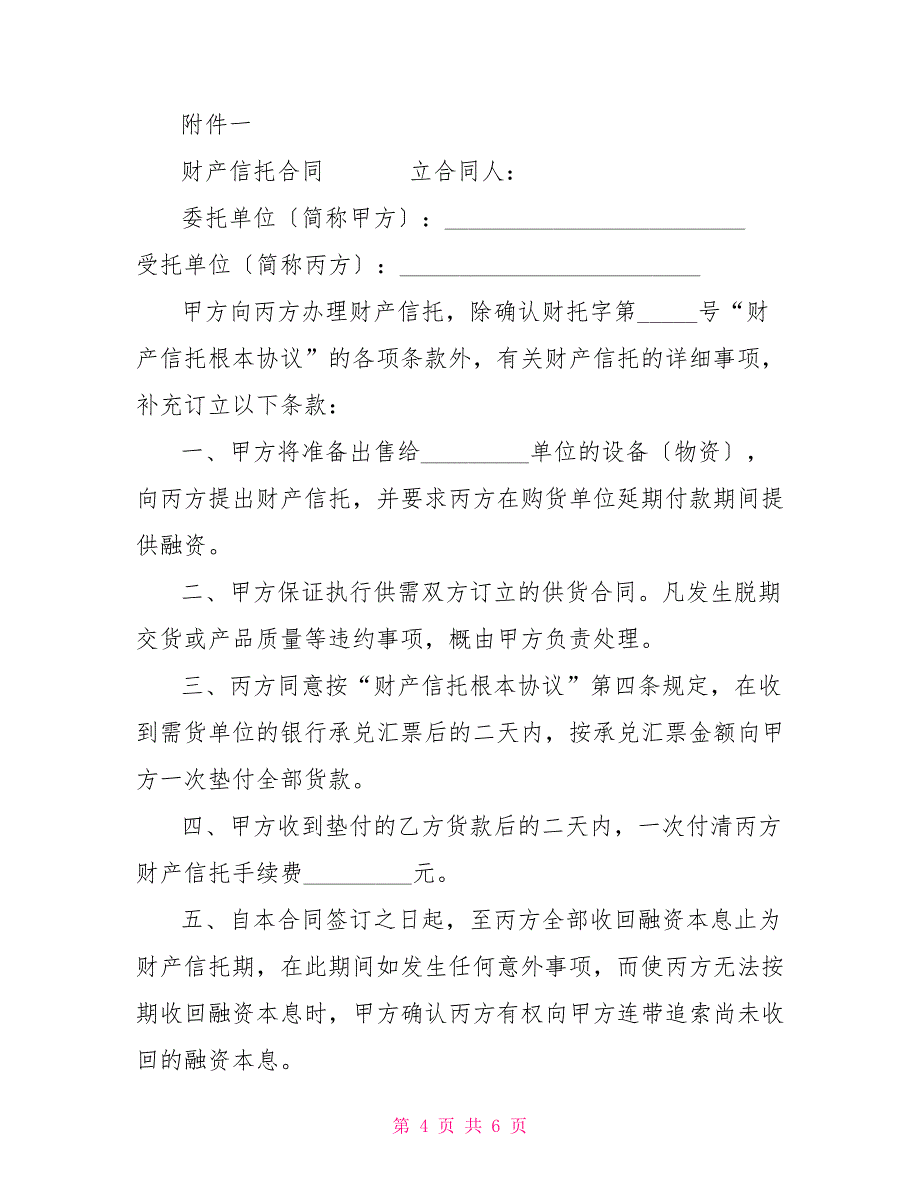 附件一
财产信托合同 立合同人：
委托单位〔简称甲方〕：_________________________
受托单位〔简称丙方〕：_________________________
甲方向丙方办理财产信托，除确认财托字第_____号“财
产信托根本协议”的各项条款外，有关财产信托的详细事项，
补充订立以下条款：
一、甲方将准备出售给_________单位的设备〔物资〕，
向丙方提出财产信托，并要求丙方在购货单位延期付款期间提
供融资。
二、甲方保证执行供需双方订立的供货合同。凡发生脱期
交货或产品质量等违约事项，概由甲方负责处理。
三、丙方同意按“财产信托根本协议”第四条规定，在收
到需货单位的银行承兑汇票后的二天内，按承兑汇票金额向甲
方一次垫付全部货款。
四、甲方收到垫付的乙方货款后的二天内，一次付清丙方
财产信托手续费_________元。
五、自本合同签订之日起，至丙方全部收回融资本息止为
财产信托期，在此期间如发生任何意外事项，而使丙方无法按
期收回融资本息时，甲方确认丙方有权向甲方连带追索尚未收
回的融资本息。
第 4 页 共 6 页